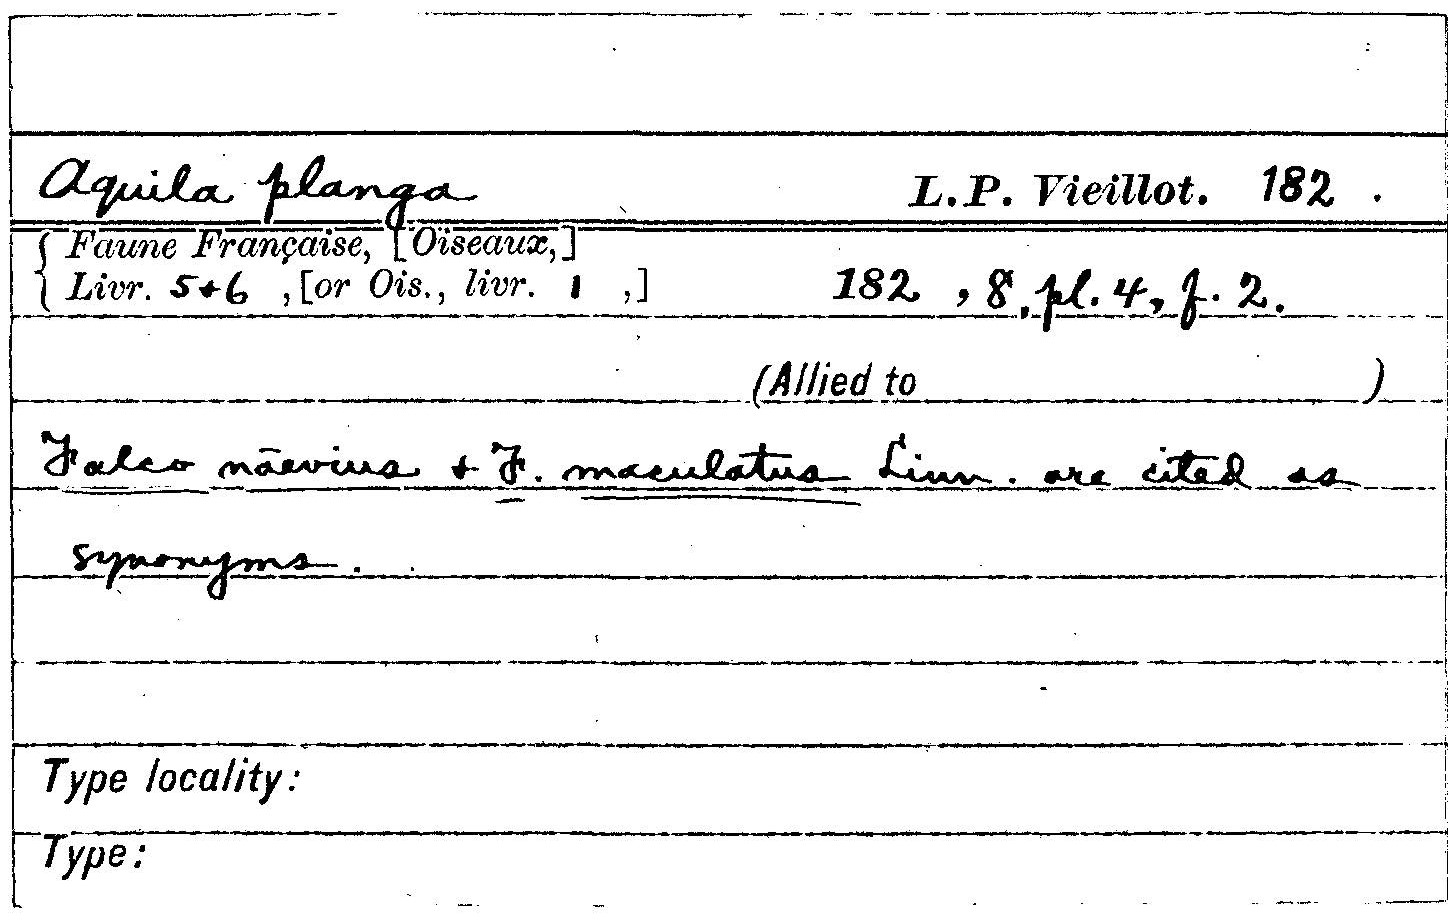 Aquila planga L.P. Vieillot. 182 .
Faune Française, [Oiseaux,]
Livr. 5+6 , [or Ois., livr. 1 ,] 182 , 8, pl. 4, f. 2.
(Allied to )
Falco nāevius + F. maculatus Linn. are cited as
synonyms.
Type locality:
Type: